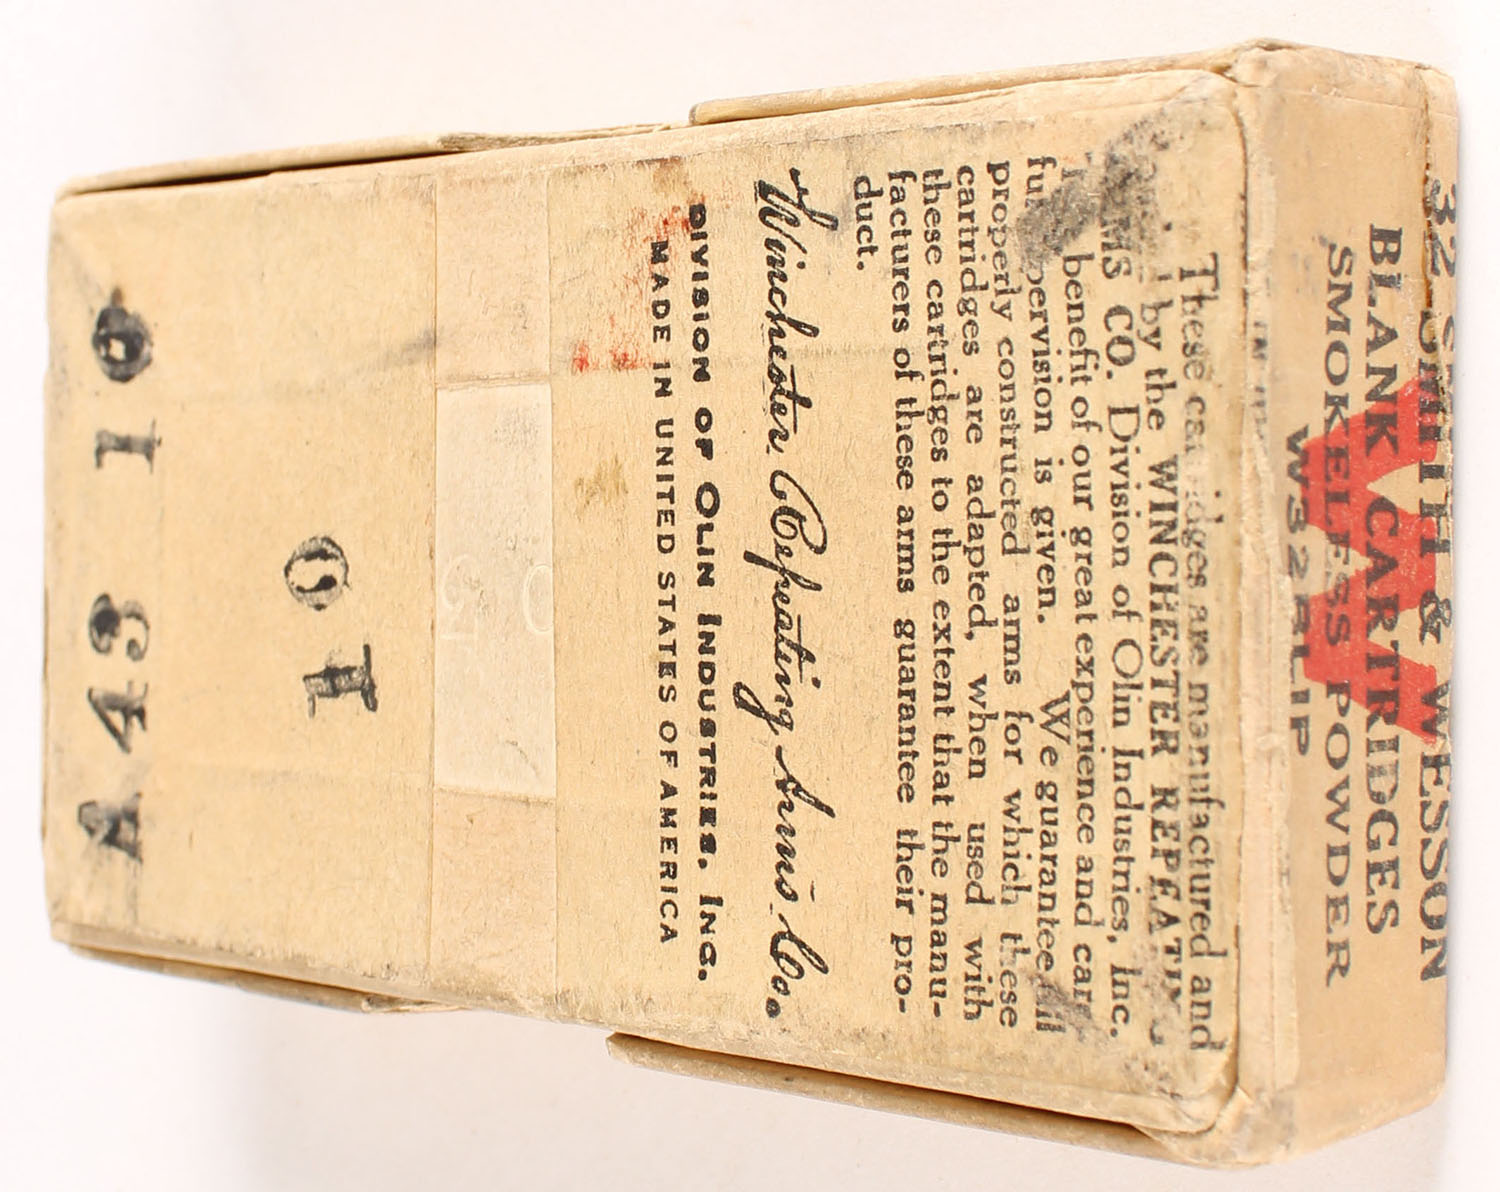 32 SMITH & WESSON
BLANK CARTRIDGES
SMOKELESS POWDER
W32BLIP
W
These cartridges are manufactured and
by the WINCHESTER REPEATING
ARMS CO. Division of Olin Industries, Inc.
benefit of our great experience and care-
supervision is given. We guarantee
properly constructed arms for which these
cartridges are adapted, when used with
these cartridges to the extent that the manu-
facturers of these arms guarantee their pro-
duct.
Winchester Repeating Arms Co.
DIVISION OF OLIN INDUSTRIES, INC.
MADE IN UNITED STATES OF AMERICA
10
A43 10